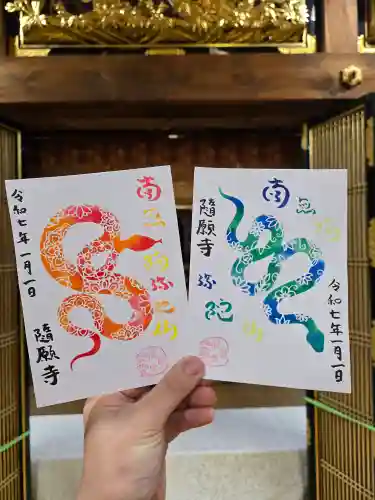 令和七年一月一日
南無阿弥陀仏
隨願寺
南無阿弥陀仏
隨願寺
令和七年一月一日